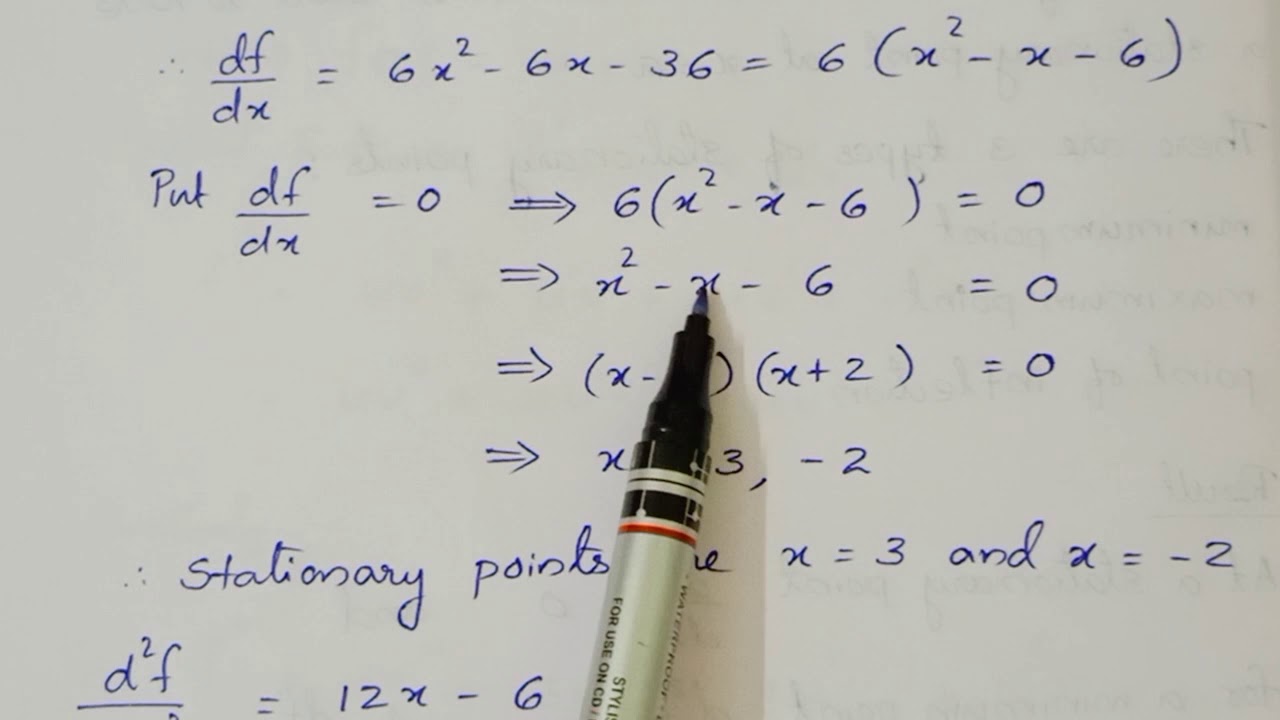 ∴ df/dx = 6x² - 6x - 36 = 6 (x² - x - 6)
Put df/dx = 0 ⟹ 6(x² - x - 6) = 0
⟹ x² - x - 6 = 0
⟹ (x - ) (x + 2) = 0
⟹ x 3, -2
∴ Stationary points x = 3 and x = -2
d²f = 12x - 6
WATERPROOF
FOR USE ON CD